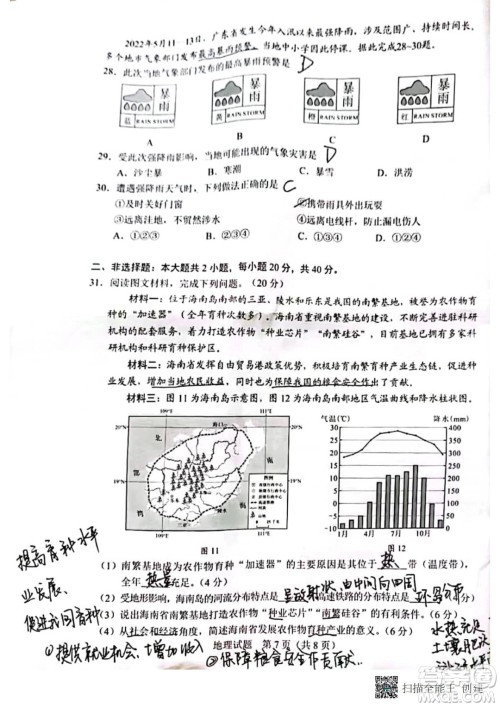 2022年5月11—13日，广东省发生今年入汛以来最强降雨，涉及范围广，持续时间长，
多个地市气象部门发布最高暴雨预警。当地中小学因此停课。据此完成28~30题。
28．此次当地气象部门发布的最高暴雨预警是 D
暴雨 暴雨 暴雨 暴雨
蓝 RAIN STORM 黄 RAIN STORM 橙 RAIN STORM 红 RAIN STORM
A B C D
29．受此次强降雨影响，当地可能出现的气象灾害是 D
A．沙尘暴 B．寒潮 C．暴雪 D．洪涝
30．遭遇强降雨天气时，下列做法正确的是 C
①及时关好门窗 ②携带雨具外出玩耍
③远离洼地，不贸然涉水 ④远离电线杆，防止漏电伤人
A．①②③ B．①②④ C．①③④ D．②③④
二、非选择题：本大题共2小题，每小题20分，共40分。
31．阅读图文材料，完成下列问题。（20分）
材料一：位于海南岛南部的三亚、陵水和乐东是我国的南繁基地，被誉为农作物育种
的“加速器”（全年育种次数多）。海南省重视南繁基地建设，积极推进农业、生态科研
机构的配套服务，着力打造农作物“种业芯片”“南繁硅谷”，目前已有超多家涉农科研机
构和科研育种保护区。
材料二：海南省发挥自由贸易港政策优势，积极培育南繁育种产业生态链，促进产业
升级，增加当地农民收益，同时也为保障我国的粮食安全作出了贡献。
材料三：图11为海南岛示意图，图12为海南岛南部地区气温曲线和降水柱状图。
109°E 111°E
20°N 20°N
海口
19°N 19°N
三亚
图例
109°E 111°E
图11
气温(℃) 降水(mm)
30 400
25 350
20 300
15 250
10 200
5 150
0 100
-5 50
-10 0
1月 4月 7月 10月
图12
提高育种水平
业发展
促进我国育种
（1）南繁基地成为农作物育种“加速器”的主要原因是其位于 热 带（温度带），
全年 热量 充足。（4分）
（2）受地形影响，海南岛的河流分布特点是 呈放射状,由中间向四周 高速铁路的分布特点是 环岛分布
（3）说出海南省南繁基地打造农作物“种业芯片”“南繁硅谷”的有利条件。（6分）
（4）从社会和经济角度，简述海南省发展农作物育种产业的意义。（6分）
水热充足
土壤肥沃
①提供就业机会，增加收入
②保障粮食安全作贡献
地理试题 第7页（共8页）
扫描全能王 创建